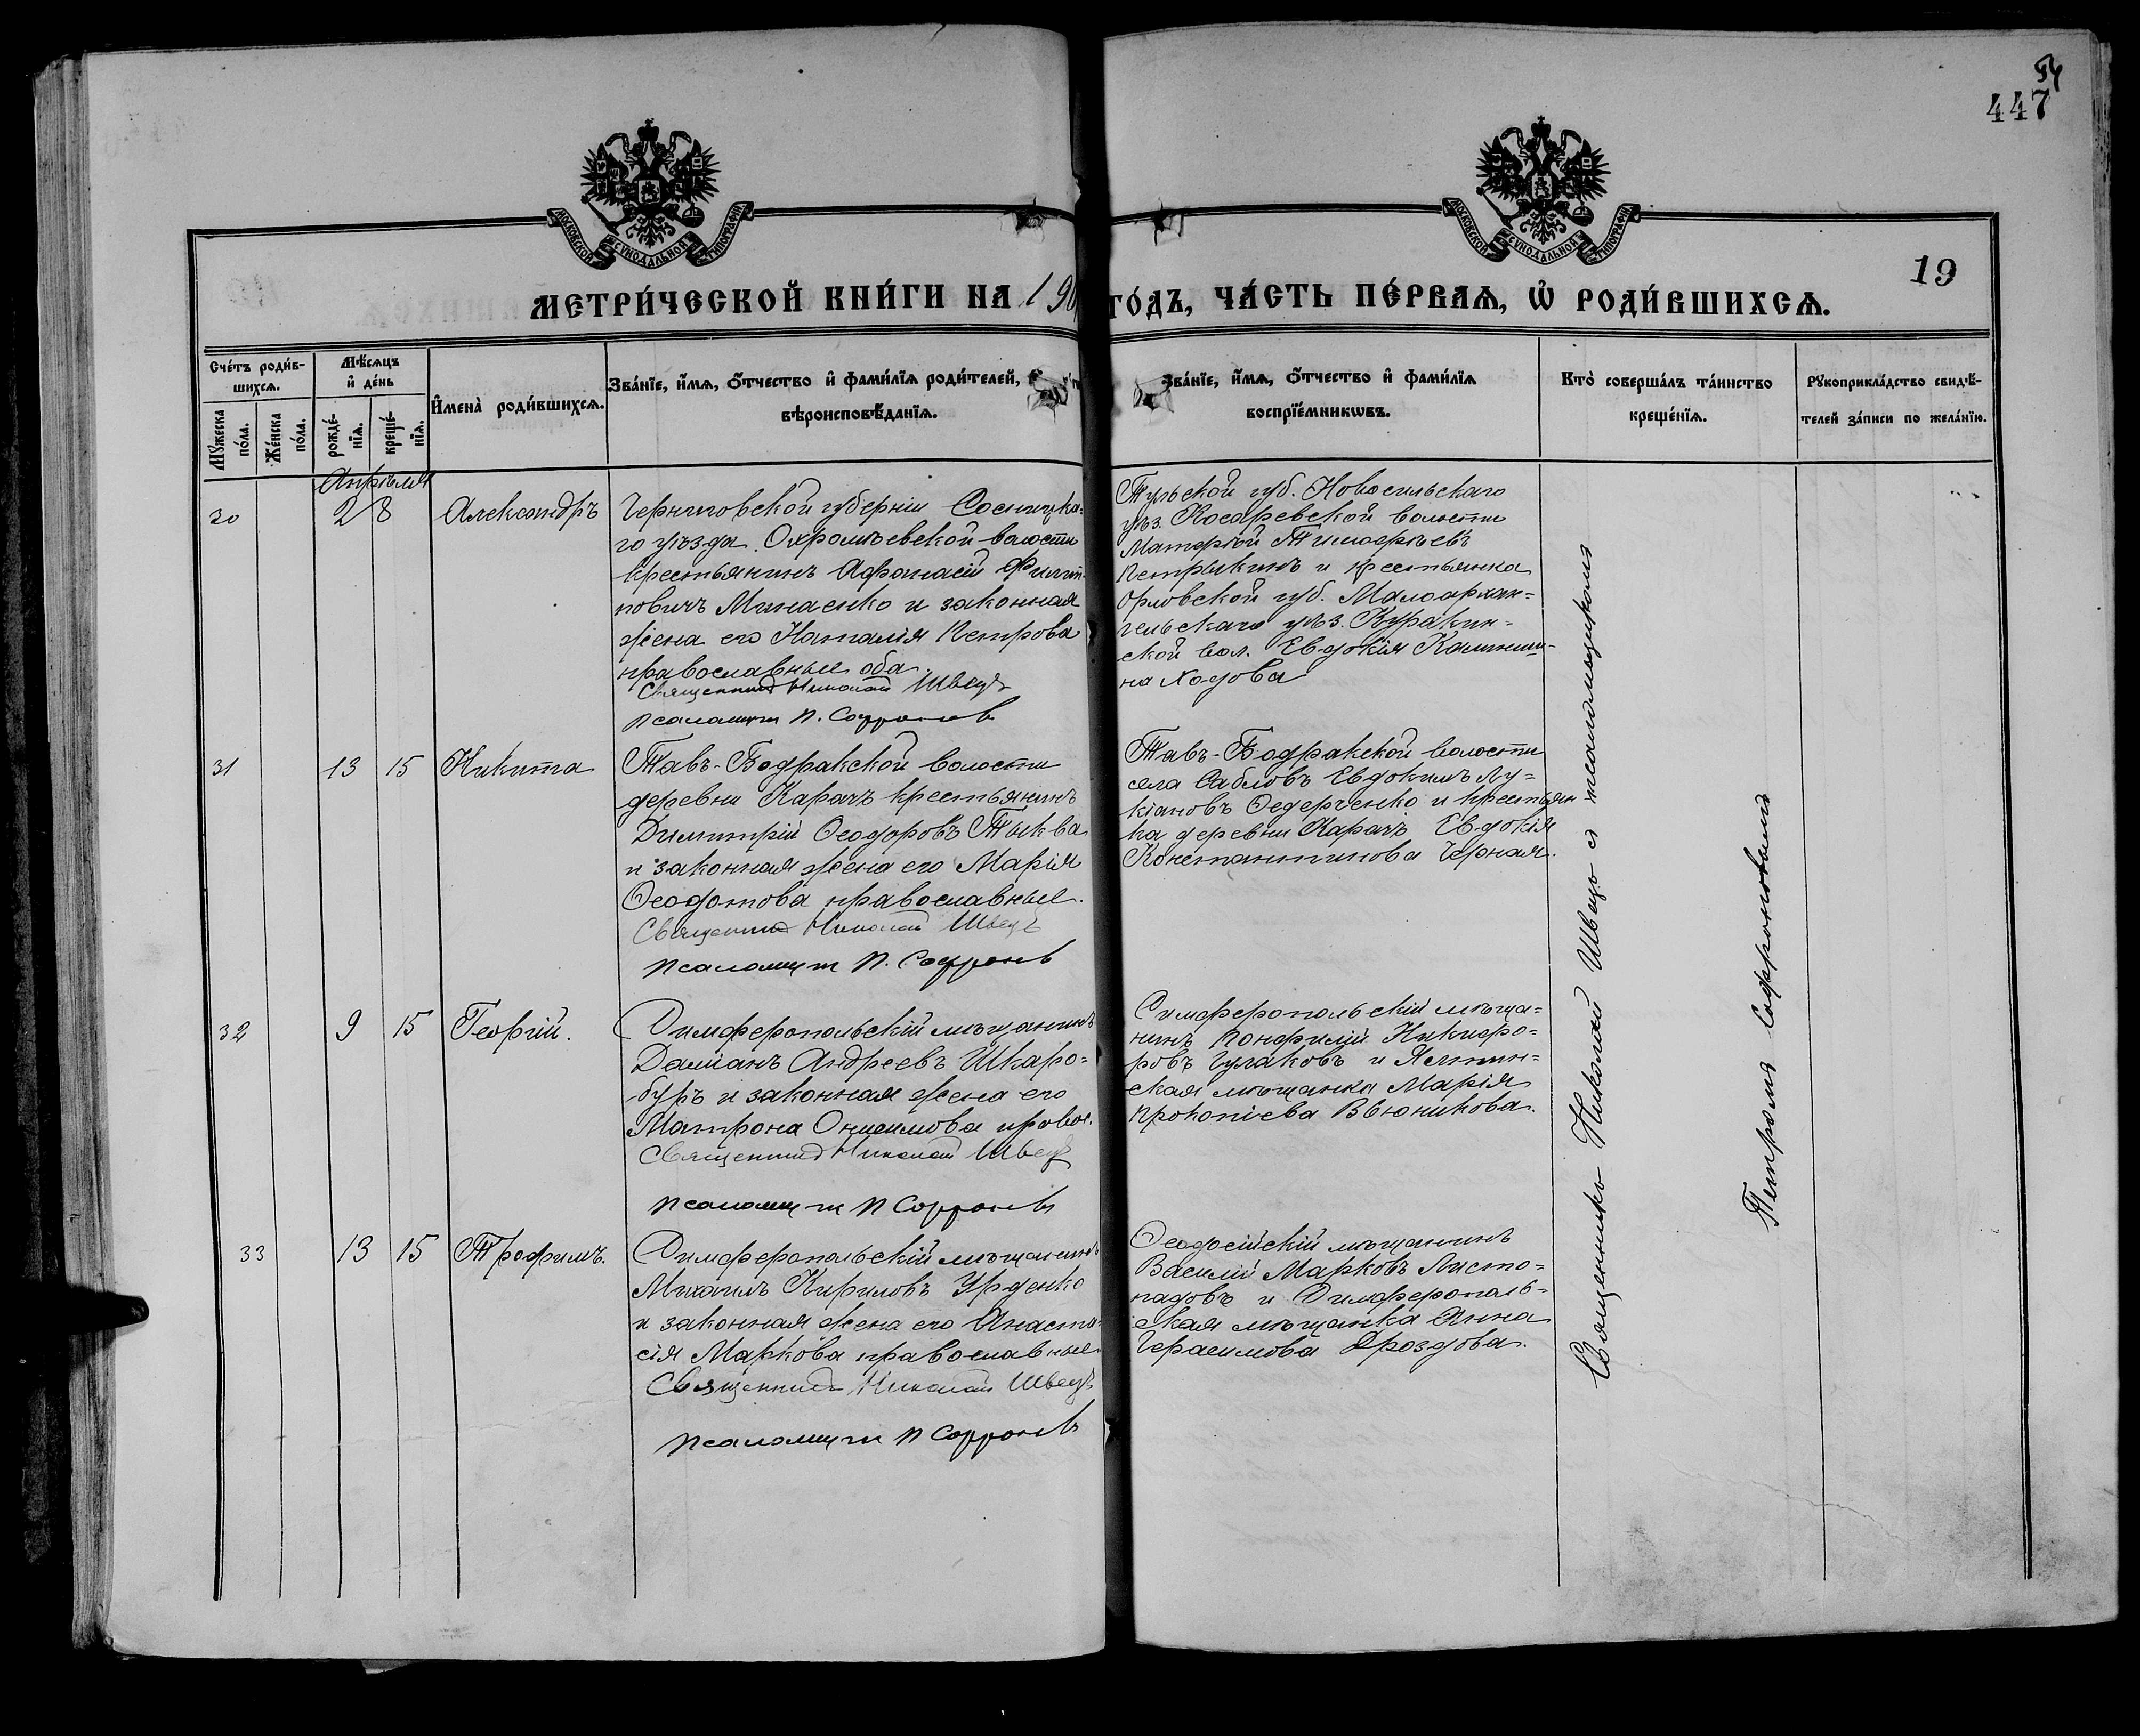 54
447
МОСКОВСКОЙ СУНОДАЛЬНОЙ ТИПОГРАФІИ
МОСКОВСКОЙ СУНОДАЛЬНОЙ ТИПОГРАФІИ
19
МЕТРИ́ЧЕСКОЙ КНИ́ГИ НА 190
ГО́ДЪ, ЧА́СТЬ ПЕ́РВАѦ, Ѿ РОДИ́ВШИХСѦ.
Сче́тъ роди́в-
шихсѧ.
Мѣ́сѧцъ
и҆ де́нь
Мꙋ́жеска
по́ла.
Же́нска
по́ла.
рожде́-
нїѧ.
креще́-
нїѧ.
И҆мена̀ роди́вшихсѧ.
Зва́нїе, и҆́мѧ, ѻ҆́тчество и҆ фами́лїѧ роди́телей,
вѣроисповѣ́данїѧ.
Зва́нїе, и҆́мѧ, ѻ҆́тчество и҆ фами́лїѧ
воспрїе́мникѡвъ.
Кто̀ соверша́лъ та́инство
креще́нїѧ.
Рꙋкоприкла́дство свидѣ́-
телей за́писи по жела́нїю.
Апрѣля
30
2 8
Александръ
Черниговской губерніи Сосницка-
го уѣзда Охромѣевской волости
крестьянинъ Афанасій Филип-
повичъ Минаенко и законная
жена его Наталія Петрова
православные оба
Священникъ Николай Швецъ
псаломщик П. Софронов
Тульской губ. Новосильскаго
уѣз. Косаревской волости
Матфѣй Тимофѣевъ
Петрыкинъ и крестьянка
Орловской губ. Малоархан=
гельскаго уѣз. Куракин-
ской вол. Евдокія Калинини-
на Ходова
31
13
15
Никита
Тавъ-Бодракской волости
деревни Карачъ крестьянинъ
Димитрій Ѳеодоровъ Тыква
и законная жена его Марія
Ѳеодотова православные.
Священникъ Николай Швецъ
псаломщик П. Софронов
Тавъ-Бодракской волости
села Сабловъ Евдокимъ Лу=
кіановъ Ѳедерченко и крестьян
ка деревни Карачъ Евдокія
Константинова Черная.
32
9
15
Георгій.
Симферопольскій мѣщанинъ
Даміанъ Андреевъ Шкаро=
буръ и законная жена его
Матрона Онисимова правос.
Священникъ Николай Швецъ
псаломщик П Софронов
Симферопольскій мѣща=
нинъ Понфилій Никифо=
ровъ Гулаковъ и Ялтин=
ская мѣщанка Марія
Прокопіева Вьюникова.
33
13
15
Трофимъ.
Симферопольскій мѣщанинъ
Михаилъ Кириловъ Урденко
и законная жена его Анаста-
сія Маркова православные
Священникъ Николай Швецъ
псаломщик П Софронов
Ѳеодосійскій мѣщанинъ
Василій Марковъ Листо=
падовъ и Симферополь-
ская мѣщанка Анна
Герасимова Дроздова.
Священникъ Николай Швецъ съ псаломщикомъ
Петромъ Софроновымъ